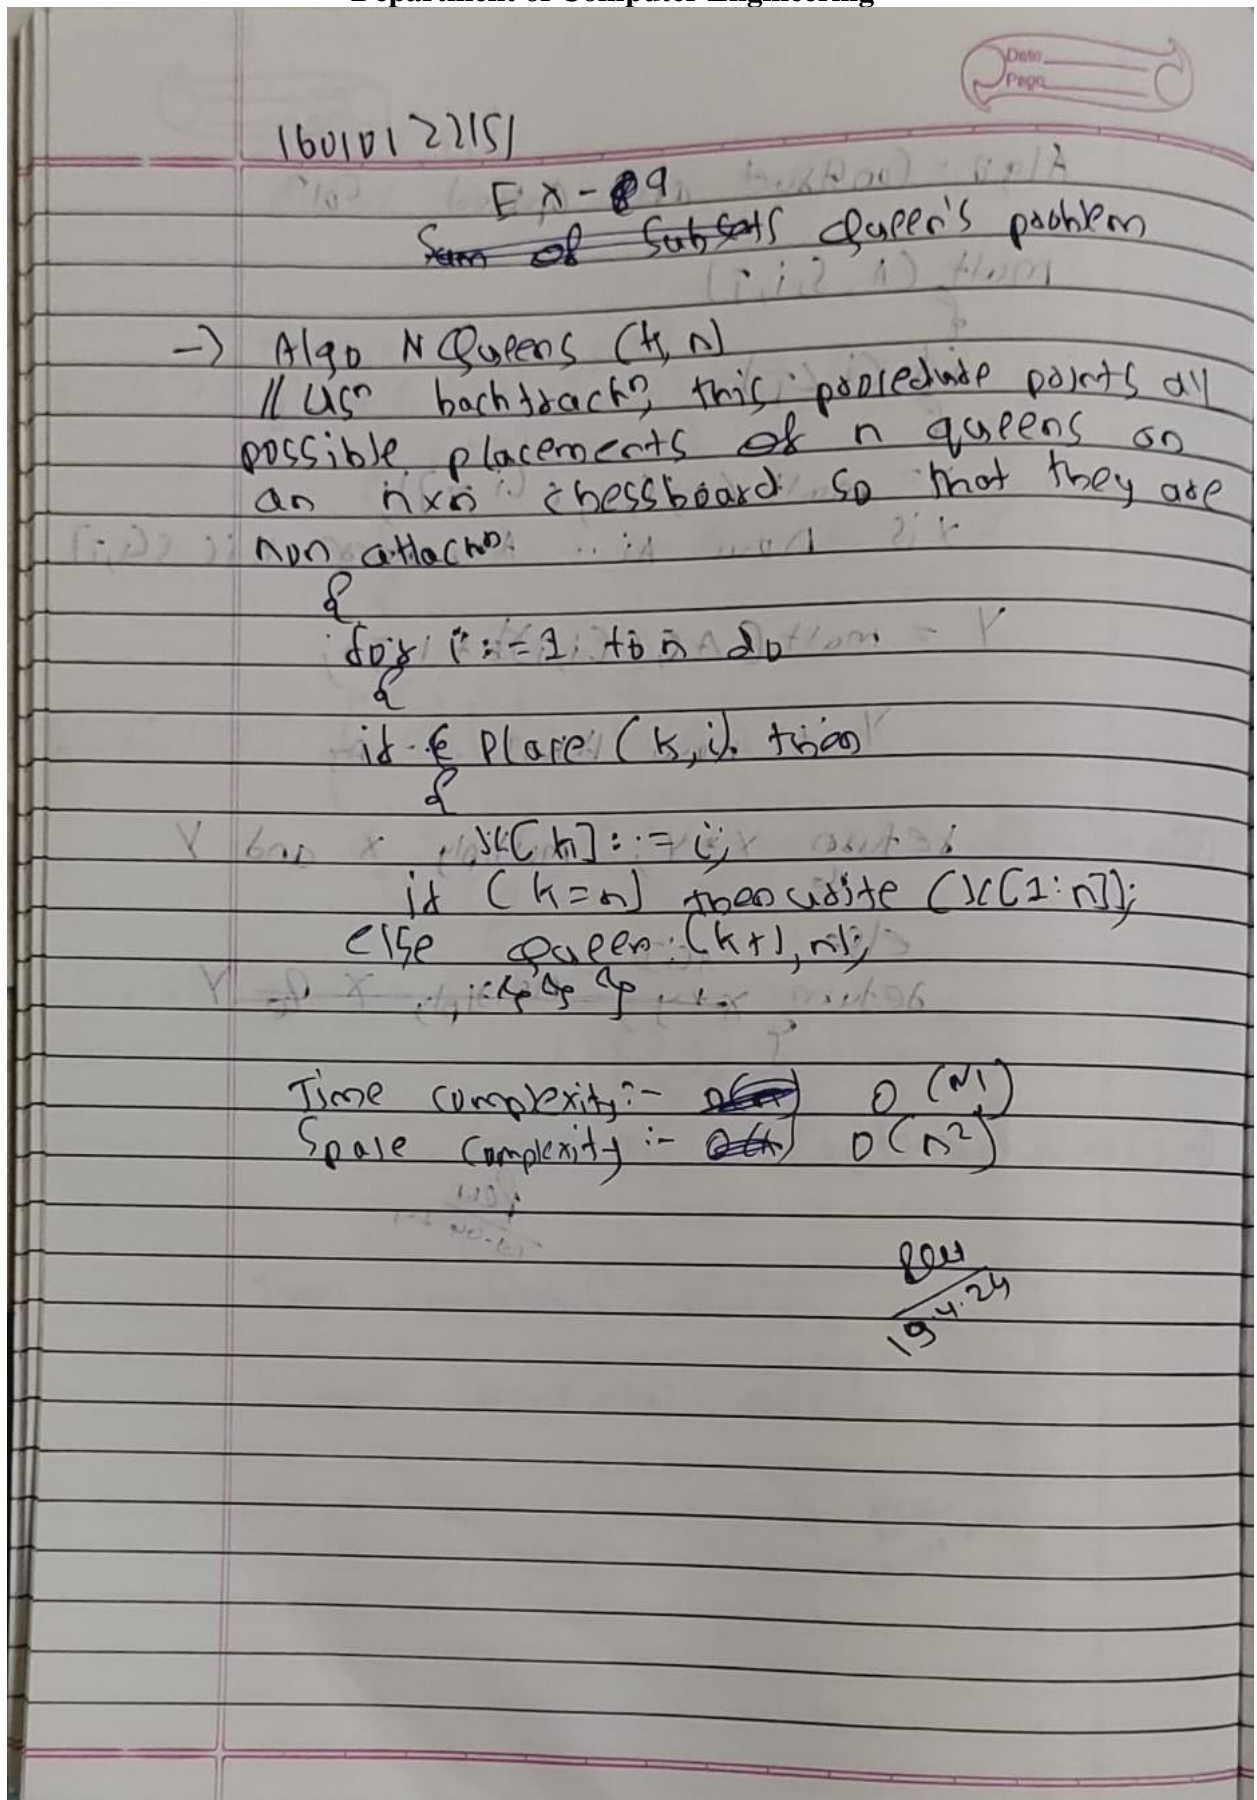 Department of Computer Engineering
Date
Page
16010122151
Ex - 9
Sum of Subsets Queen's problem
-> Algo NQueens (k, n)
// Usⁿ backtrackⁿ, this procedure prints all
possible placements of n queens on
an n×n chessboard so that they are
non attackⁿ
{
for i := 1 to n do
{
if Place (k, i) then
{
x[k] := i;
if (k = n) then write (x[1:n]);
else Queen (k+1, n);
} } }
Time complexity :- O(N!)
Space complexity :- O(n²)
19.4.24